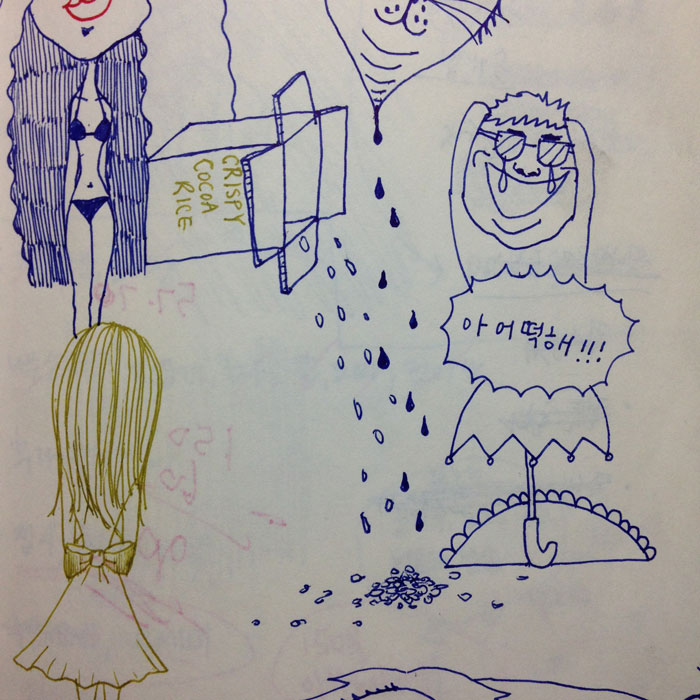 CRISPY
COCOA
RICE
아 어떡해!!!